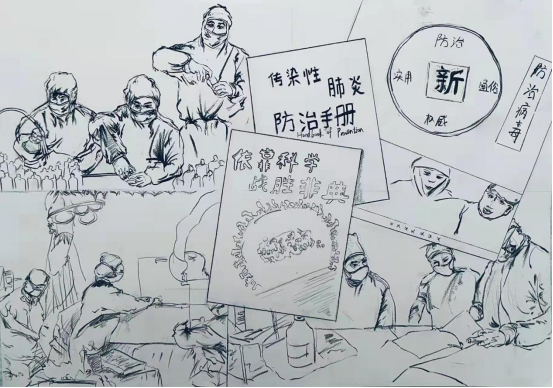 传染性
肺炎
防治手册
Handbook of Prevention
依靠科学
战胜非典
防治
实用
新
通俗
权威
防治病毒